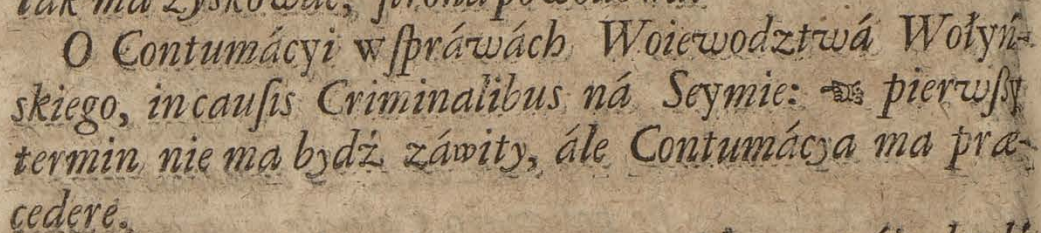 tak ma zyskować, ſtrona powodowa.
O Contumácyi wſpráwách Woiewodztwá Wołyń-
skiego, in cauſis Criminalibus ná Seymie: ☜ pierwſſy
termin nie ma bydź záwity, ále Contumácya ma præ-
cedere.